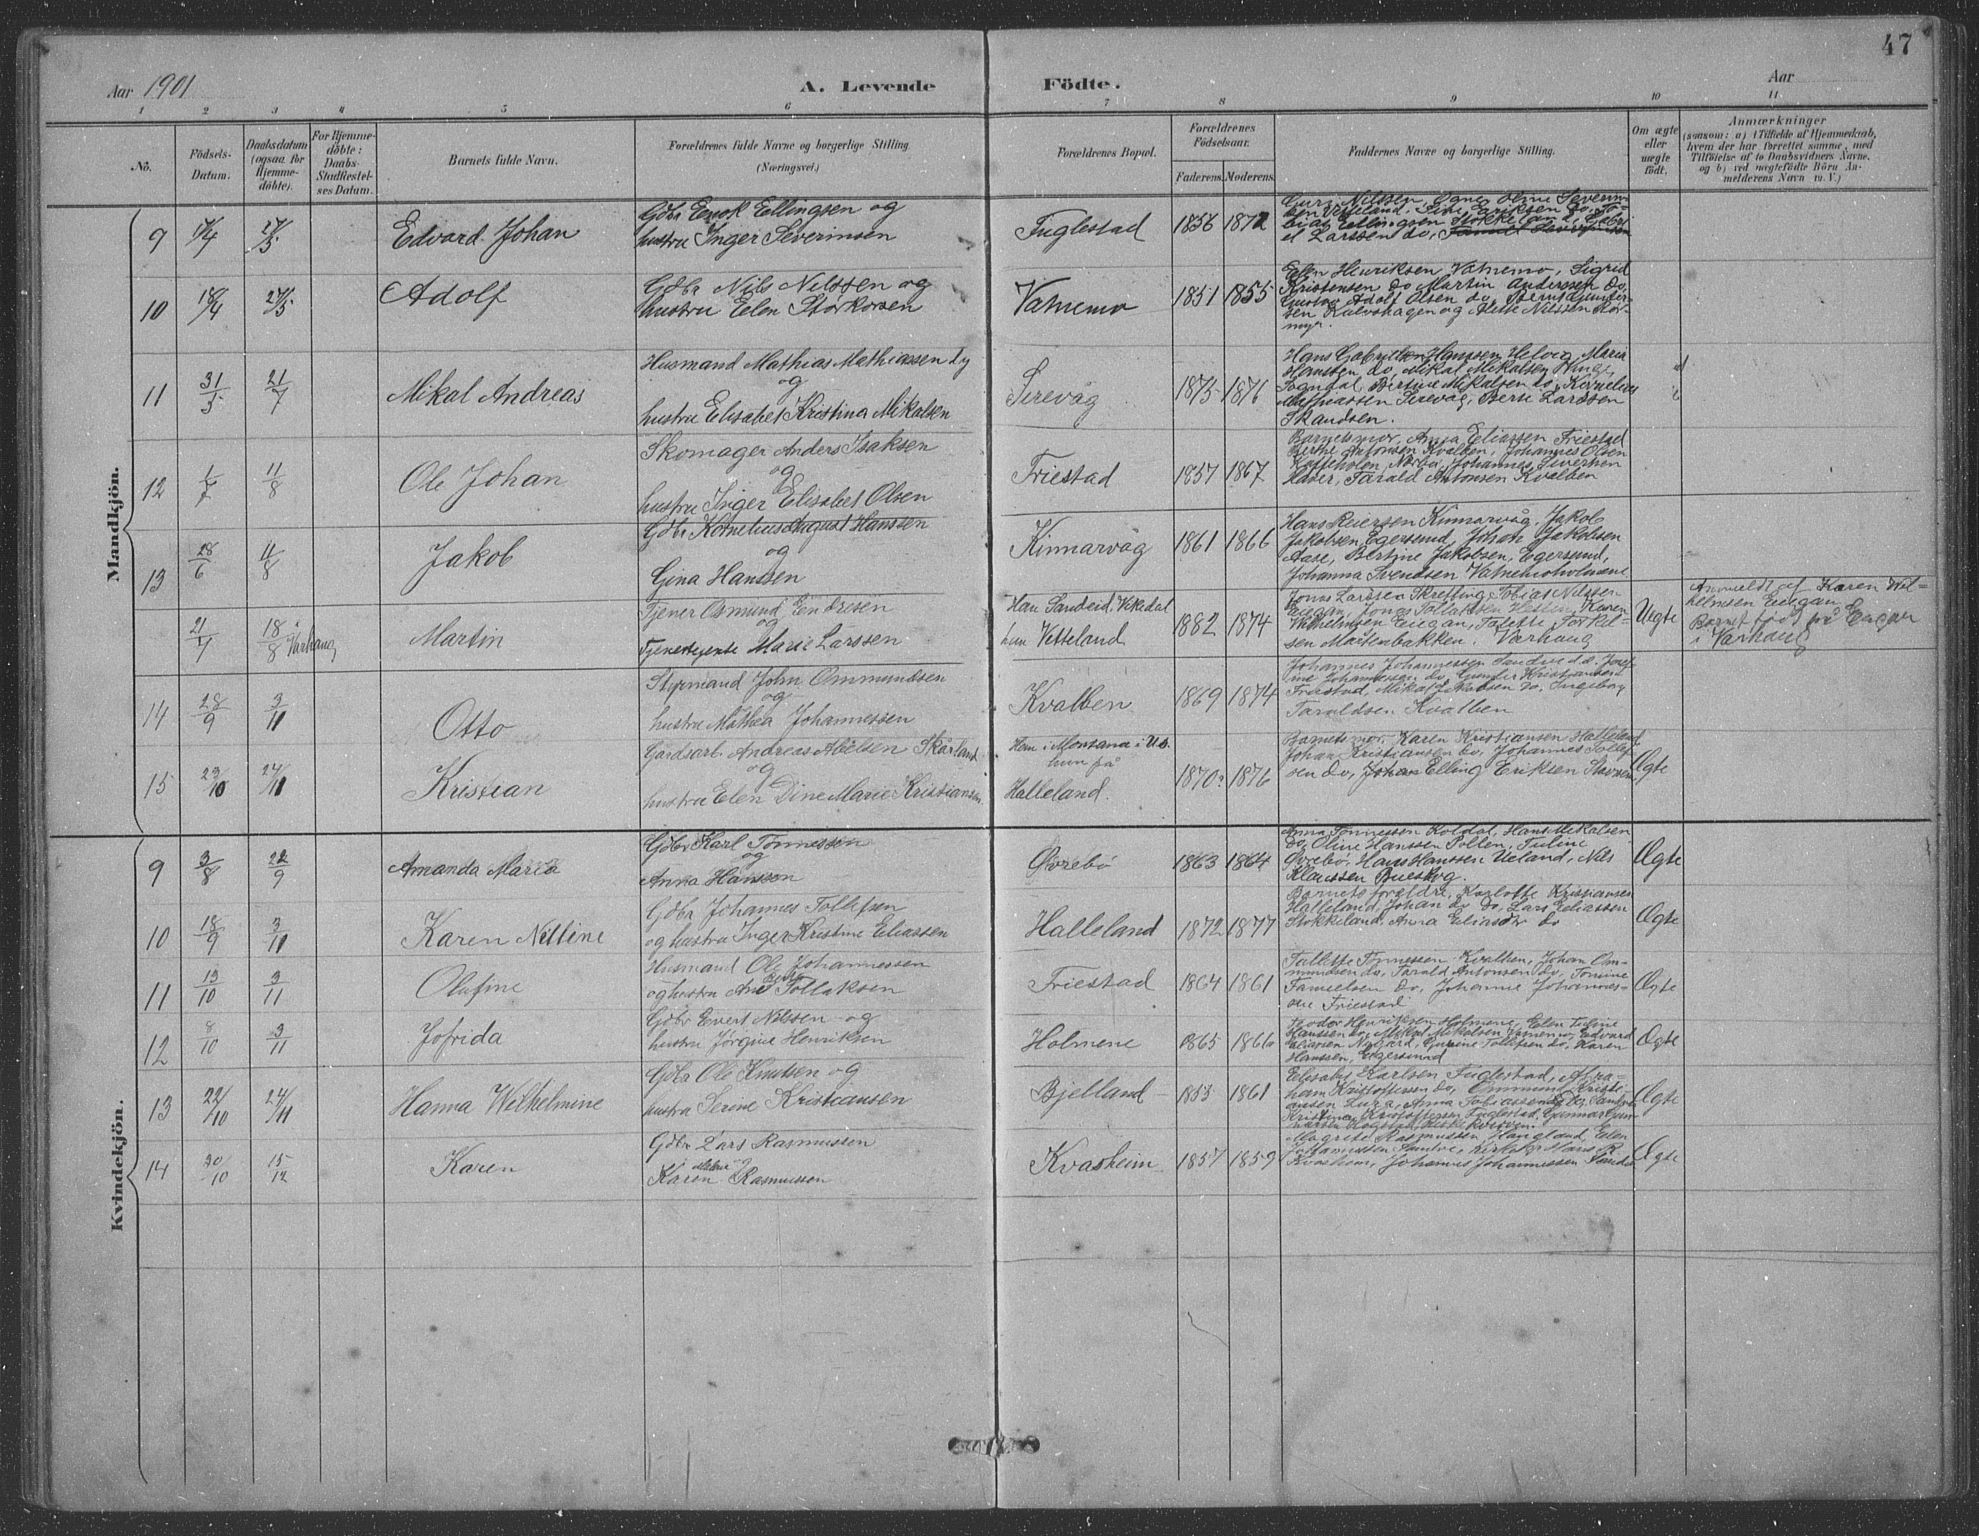 47
Aar 1901 A. Levende Födte. Aar
1 2 3 4 5 6 7 8 9 10 11
No. Födsels-Datum. Daabsdatum (ogsaa for Hjemmedöbte). For Hjemmedöbte: Daabs-Stadfæstelses Datum. Barnets fulde Navn. Forældrenes fulde Navne og borgerlige Stilling (Næringsvei.) Forældrenes Bopæl. Forældrenes Födselsaar. Faderens. Moderens. Faddernes Navne og borgerlige Stilling. Om ægte eller uægte födt. Anmærkninger (saasom: a) i Tilfælde af Hjemmedaab, hvem der har forrettet samme, med Tilföielse af to Daabsvidners Navne, og b) ved uægtefödte Börn Anmelderens Navn m. V.)
Mandkjön.
9 17/4 27/5 Edvard Johan
Gdbr Enok Ellingsen og
hustru Inger Severinsen
Fuglestad 1856 1872
Nilssen, Ogne, Oline Severin-
sen Vetteland,
Ellingsen Stokkeland,
Larssen do,
10 18/4 27/5 Adolf
Gdbr Nils Nilssen og
hustru Elen Storkorsen
Vatnemo 1851 1855
Elen Henriksen Vatnemo, Sigrid
Kristensen do Martin Anderssen do,
Gustav Adolf Olsen do, Bernt Gunder-
sen Kalvshagen og Mette Nilssen Kor-
myr.
11 31/5 21/7 Mikal Andreas
Husmand Mathias Mathiassen
og
hustru Elisabet Kristina Mikalsen
Sirevåg 1875 1876
Hans Gabriel Hanssen Helvig, Maria
Hanssen do, Mikal Mikalsen
Sogndal, Bertine Mikalsen do, Kornelius
Mathiassen Sirevåg, Berte Larssen
Skandsen.
12 11/8 Ole Johan
Skomager Anders Isaksen
og
hustru Inger Elisabet Olsen
Friestad 1857 1867
Barnets mor, Anna Eliassen Friestad
Berthe Antonsen Kvalben, Johannes Olsen
Nærbø, Johannes Sivertsen
Haver, Tarald Antonsen Kvalben
13 28/6 11/8 Jakob
Gdbr Kornelius August Hanssen
og
Gina Hanssen
Kinnarvåg 1861 1866
Hans Reiersen Kinnarvåg, Jakob
Jakobsen Egersund, Johan Jakobsen
Aase, Bertine Jakobsen, Egersund,
Johanna Svendsen Vatnemoholmene
21/7 18/8 i Varhaug Martin
Tjener Osmund Endresen
og
Tjenestejente Marie Larssen
Han Sandeid, Vikedal
hun Vetteland 1882 1874
Jonas Larssen Skretting, Tobias Nilssen
Eiegan, Jonas Tollaksen Hesten, Karen
Wilhelmsen Eiegan, Tosette Torkel-
sen Mattenbakken. Varhaug
Uegte
Anmeldt af Karen Wil-
helmsen Eiegan
Barnet født på Eiegan
i Varhaug
14 28/9 3/11 Otto
Styrmand John Ommundsen
og
hustru Mathea Johannessen
Kvalben 1869 1874
Johannes Johannessen Sandve d.æ. Josef-
ine Johannessen do, Gunder Kristiansen
Friestad, Mikal Jakobsen do, Ingeborg
Taraldsen Kvalben
15 23/10 24/11 Kristian
Gårdsarb. Andreas Abelsen Skårland
og
hustru Elen Dine Marie Kristiansen
Han i Montana i U.S.
hun på
Halleland. 1870? 1876
Barnets mor, Karen Kristiansen Halleland
Johan Kristiansen do, Johannes Tollef-
sen do, Johan Elling Eriksen Stavnem
Ægte
Kvindekjön.
9 3/8 22/9 Amanda Maria
Gdbr Karl Tönnessen
og
Anna Hanssen
Øvrebö 1863 1864
Anna Tönnessen Koldal, Hans Mikalsen
do, Oline Hanssen Polten, Tuline
Øvrebö, Hans Hanssen Ueland, Nils
Klaussen Bueskog.
Ægte
10 18/9 3/11 Karen Nilline
Gdbr Johannes Tollefsen
og hustru Inger Kristine Eliassen
Halleland 1872 1877
Barnets foreldre, Karlotte Kristiansen
Halleland, Johan do do, Lars Eliassen
Stokkeland, Anna Eliasdtr do
Ægte
11 13/10 3/11 Olufine
Husmand Ole Johannessen
og hustru Ane Tollaksen
Friestad 1864 1861
Tallette Tönnessen Kvalben, Johan Om-
mundsen do, Tarald Antonsen do, Tomine
Samuelsen do, Johanne Johannes-
sen Friestad
Ægte
12 8/10 3/11 Jofrida
Gdbr Evert Nilssen og
hustru Jørgine Henriksen
Holmene 1865 1866
Teodor Henriksen Holmene, Elen Teline
Hanssen do, Mikal Mikalsen Vatnemo, Edvard
Eliassen Nygård, Gurine Tollefsen do, Karen
Hanssen, Egersund
Ægte
13 22/10 24/11 Hanna Wilhelmine
Gdbr Ole Knutsen og
hustru Serine Kristiansen
Bjelland 1855 1861
Elisabet Karlsen Fuglestad, Abra-
ham Kristoffersen do, Ommund Kristi-
ansen Lura, Anna Tobiassen
Kristina Kristoffersen Fuglestad, Gunnar Gun-
narsen Hogstad,
Ægte
14 20/10 15/12 Karen
Gdbr Lars Rasmussen
og
Karen Malene Rasmussen
Kvasheim 1857 1859
Magrete Rasmussen Haugland, Elen
Johannessen Sandve, Kirkes. Hans R.
Kvasheim, Johannes Johannessen Sandve
Ægte